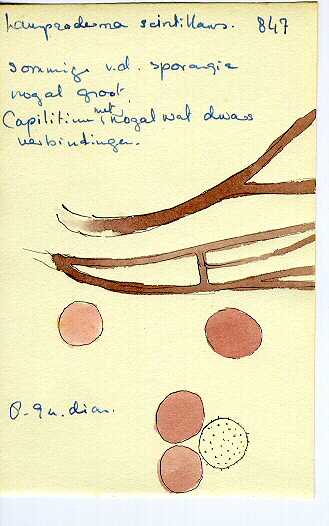 Lamproderma scintillans. 847
sommige v.d. sporangia
nogal groot.
Capilitium, met nogal wat dwars
verbindingen.
8-9 u. diam.